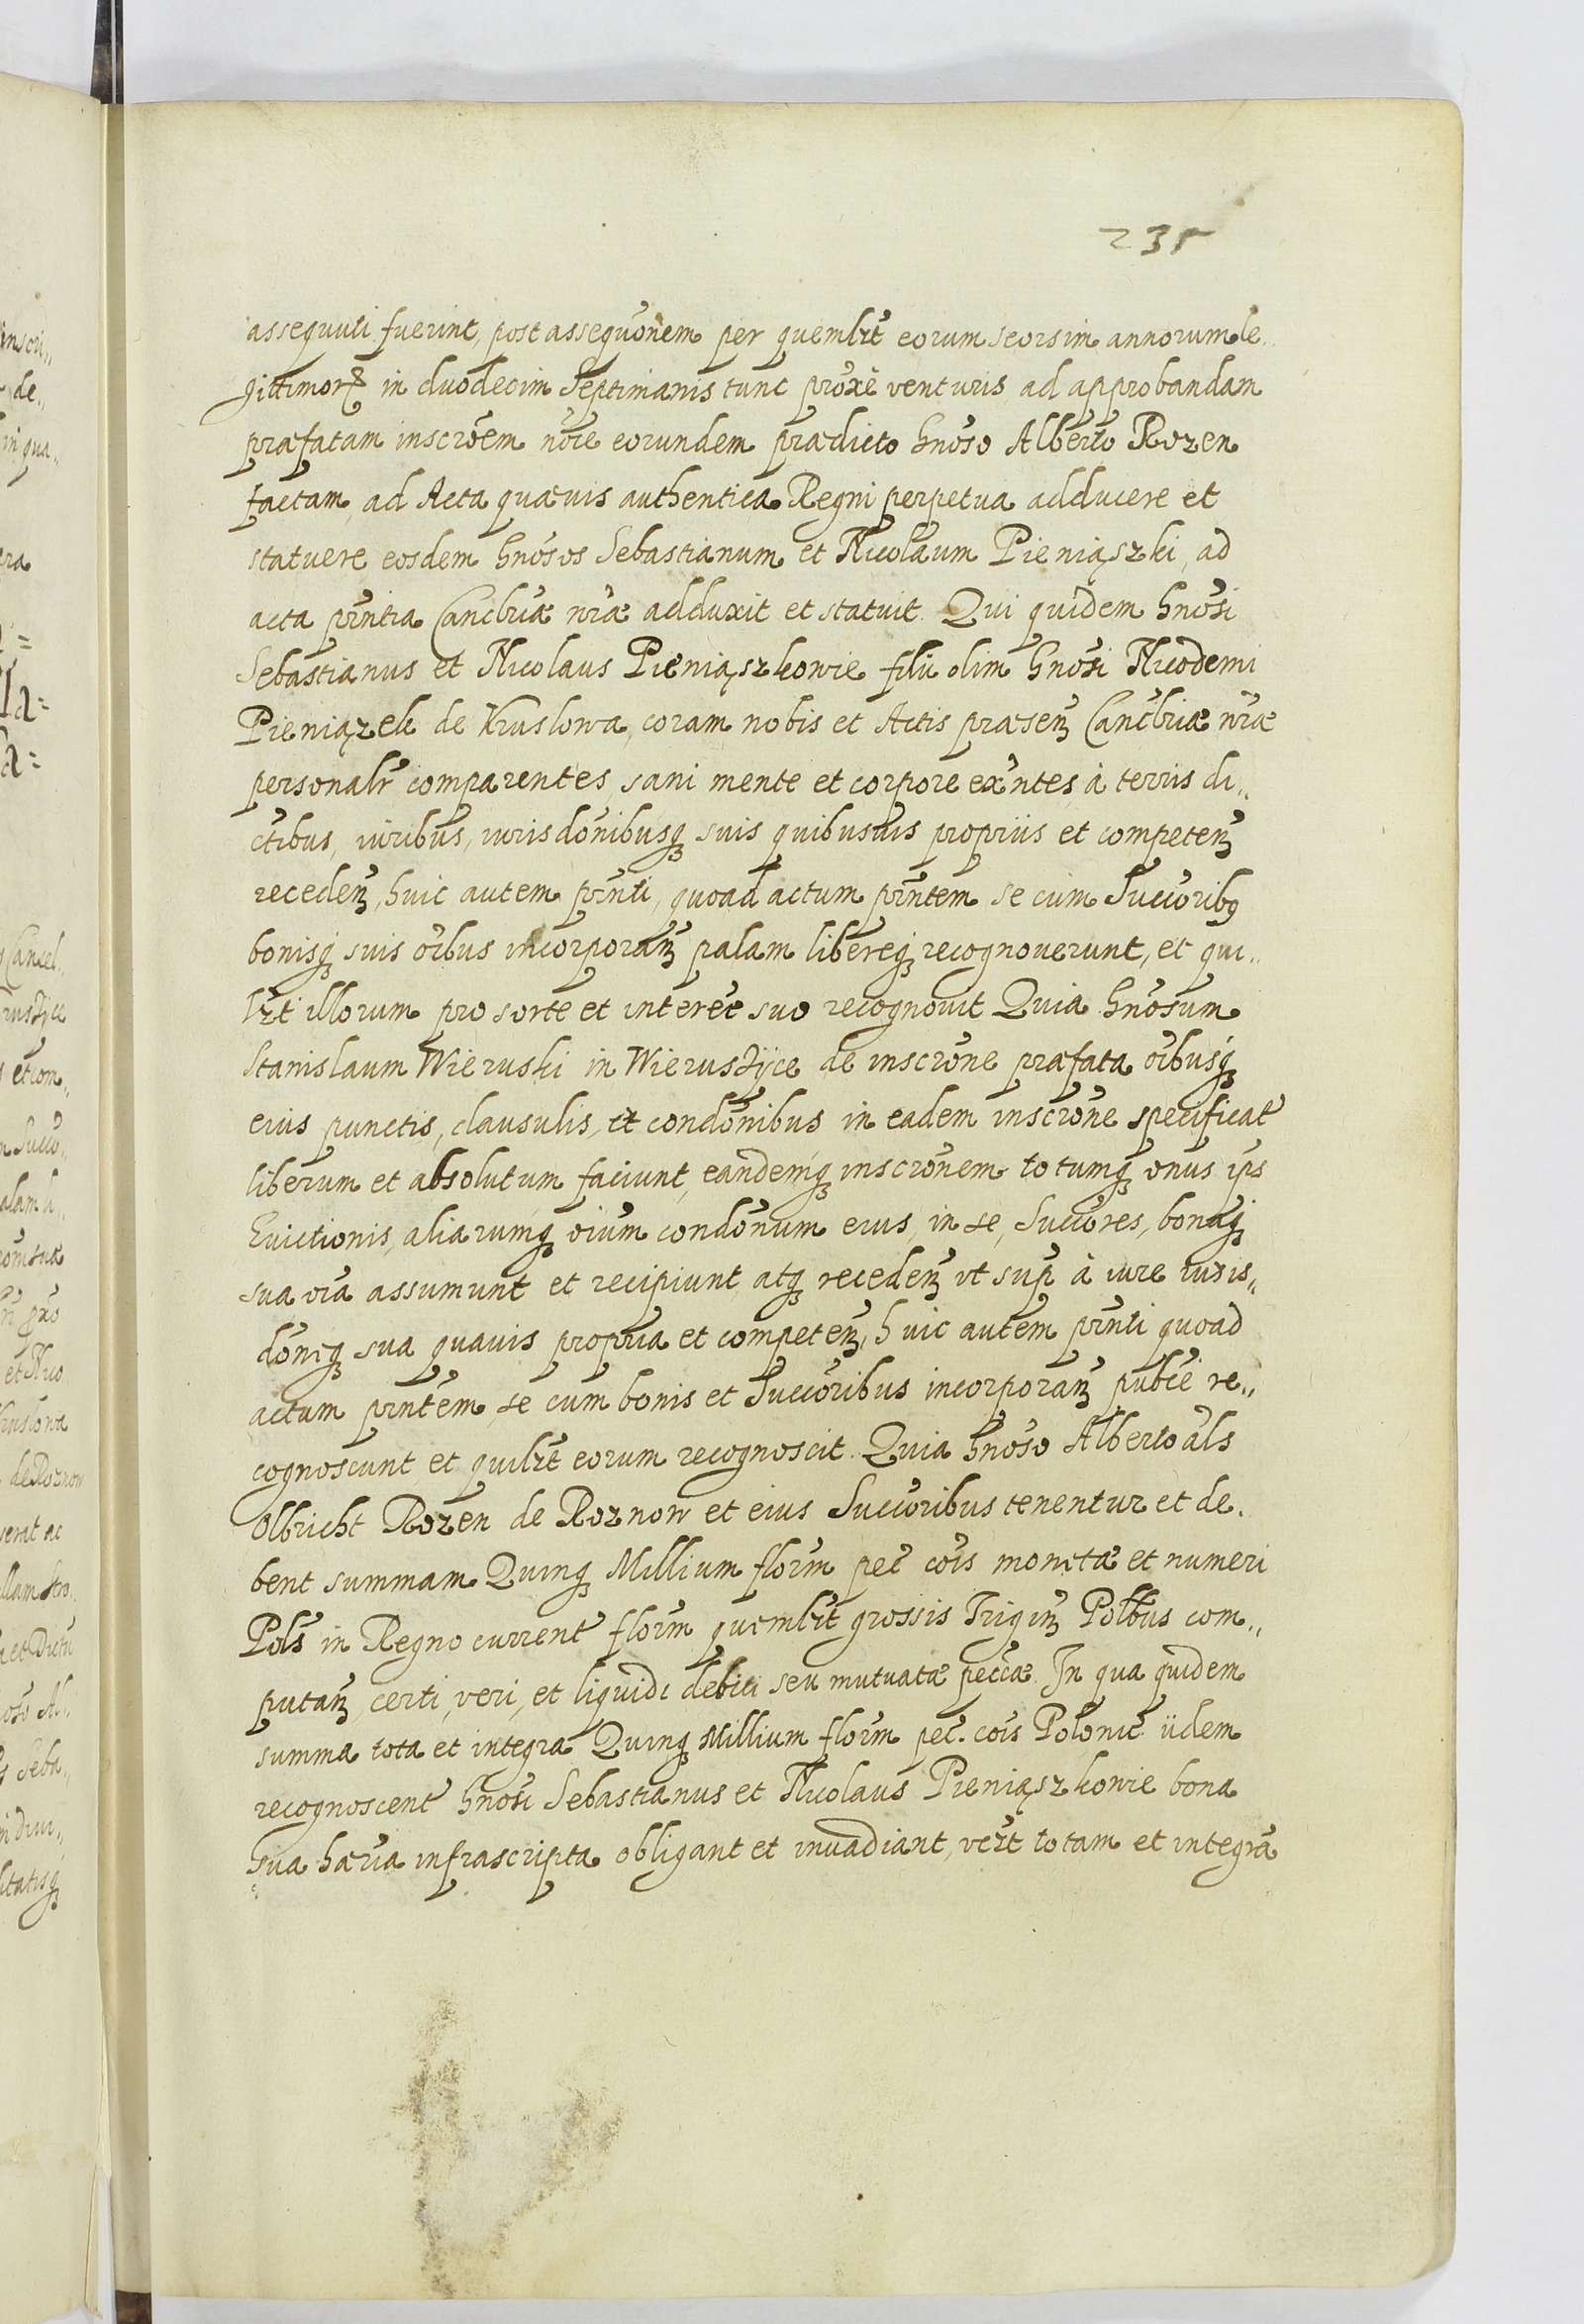 235
assequuti fuerint, post assequõnem per quemlꝫt eorum seorsim annorum le..
gittimorꝫ in duodecim Septimanis tunc proxè venturis ad approbandam
præfatam inscrõem nõie eorundem prædicto Gnõso Alberto Rozen
factam, ad Acta quævis authentica Regni perpetua adducere et
statuere, eosdem Gnõsos Sebastianum et Nicolaum Pieniąszki, ad
acta pñntia Cancẽriæ nr̃æ adduxit et statuit. Qui quidem Gnõsi
Sebastianus et Nicolaus Pieniąszkowie filii olim Gnõsi Nicodemi
Pieniązek de Kruslowa, coram nobis et Actis præsenꝫ Cancẽriæ nr̃æ
personalr̃ comparentes, sani mente et corpore exñtes, à terris di,,
ctibus, iuribus, iurisdõnibusqꝫ suis quibusuis propriis et competenꝫ
recedenꝫ, huic autem pñnti, quoad actum pñntem se cum Succõribꝰ
bonisqꝫ suis õibus incorporanꝫ palam libereqꝫ recognouerunt, et qui,,
lꝫt illorum pro sorte et interẽe suo recognouit Quia Gnõsum
Stanislaum Wieruski in Wierusżÿce de inscrõne præfata õibusqꝫ
eius punctis, clausulis, et condõnibus in eadem inscrõne specificat̃
liberum et absolutum faciunt, eandemqꝫ inscrõnem totumqꝫ onus ips̃
Euictionis, aliarumqꝫ õium condõnum eius, in se, Succõres, bonaqꝫ
sua õia assumunt et recipiunt atqꝫ recedenꝫ vt sup̃ à iure iuris,,
dõneqꝫ sua quauis propria et competenꝫ, huic autem pñnti quoad
actum pñntem, se cum bonis et Succõribus incorporanꝫ publĩe re,,
cognoscunt et quilꝫt eorum recognoscit. Quia Gnõso Alberto al̃s
Olbricht Rozen de Roznow et eius Succõribus tenentur et de.
bent summam Quinqꝫ Millium flor̃m pec̃ cõis monetæ et numeri
Pol̃s in Regno current̃ flor̃m quemlꝫt grossis Triginꝫ Pol̃bus com,,
putanꝫ, certi, veri, et liquidi debiti seu mutuatæ pec̃æ. In qua quidem
summa tota et integra Quinqꝫ Millium flor̃m pec̃. cõis Polonic̃ iidem
recognoscent̃ Gnõsi Sebastianus et Nicolaus Pieniąszkowie bona
sua hær̃ia infrascripta obligant et inuadiant, vcꝫt totam et integrã